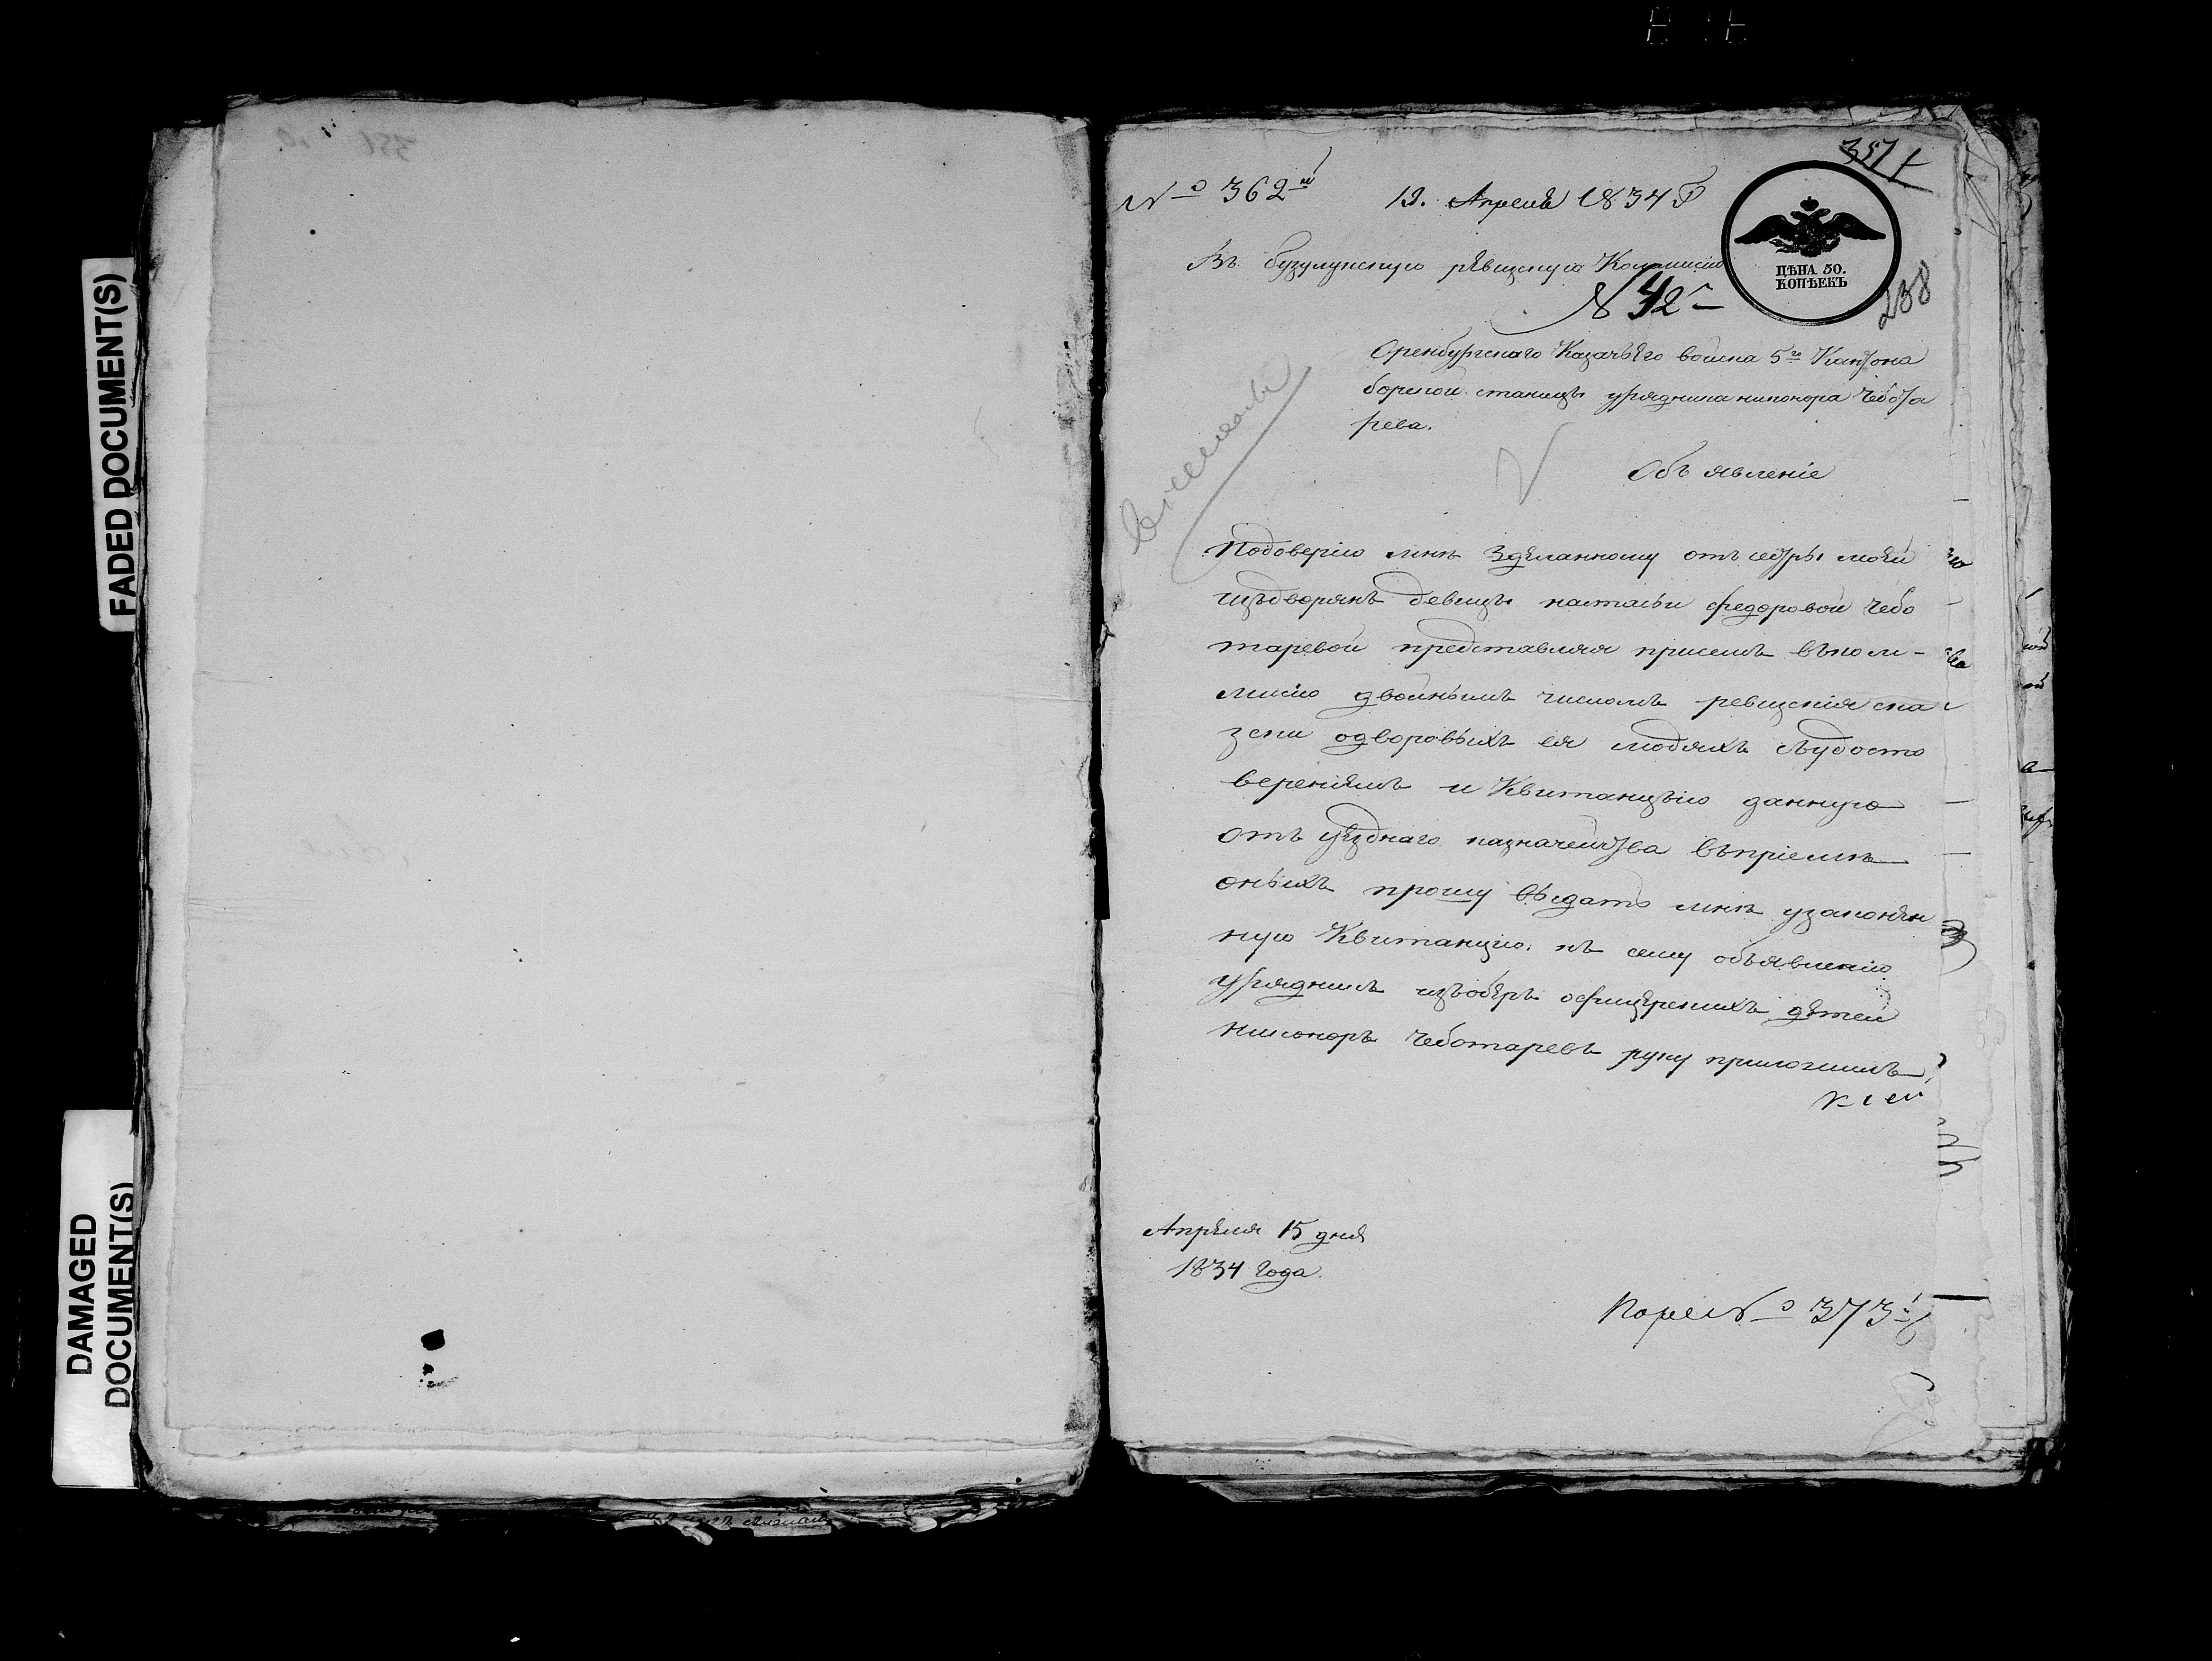 FADED DOCUMENT(S)
DAMAGED
DOCUMENT(S)
357
№ 362й
19. Апреля 1834 Г
ЦѢНА 50.
КОПѢЕКЪ
238
Въ бузулукскую рѣвизскую Коммисию
№ 42
Оренбургскаго Казачьѣго воиска 5го Кантона
борской станицы урядника никонора Чебота
рева.
Объ явленіе
Подоверію мнѣ Здѣланному отъ сестры моѣй
издворянъ девицы настасьи федоровой Чебо
таревой представляя присемъ въком-
мисію двойнымъ числомъ ревизскія ска
зски одворовыхъ ея людяхъ съудосто
вереніямъ и Квитанцыю данную
отъ уѣзднаго казначейства въпріемѣ
оныхъ прошу выдать мнѣ узаконѣн
ную Квитанцию. къ сему объявлению
урядникъ изъобѣръ офицѣрскихъ дѣтей
никоноръ Чеботаревъ руку приложилъ
Апрѣля 15 дня
1834 Года.
Порев № 373